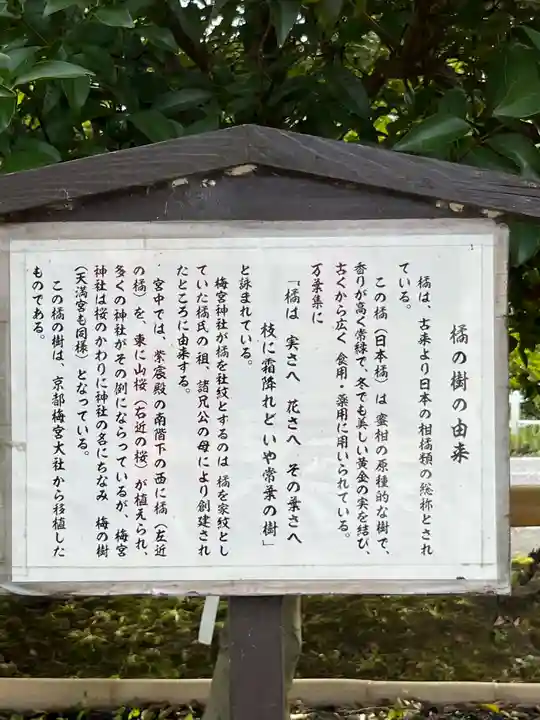 橘の樹の由来
橘は、古来より日本の柑橘類の総称とされ
ている。
この橘（日本橘）は蜜柑の原種的な樹で、
香りが高く常緑で、冬でも美しい黄金の実を結び、
古くから広く食用・薬用に用いられている。
万葉集に
「橘は　実さへ　花さへ　その葉さへ
枝に霜降れどいや常葉の樹」
と詠まれている。
梅宮神社が橘を社紋とするのは橘を家紋とし
ていた橘氏の祖、諸兄公の母により創建され
たところに由来する。
宮中では、紫宸殿の南階下の西に橘（左近
の橘）を、東に山桜（右近の桜）が植えられ、
多くの神社がその例にならっているが、梅宮
神社は桜のかわりに神社の名にちなみ　梅の樹
（天満宮も同様）となっている。
この橘の樹は、京都梅宮大社から移植した
ものである。